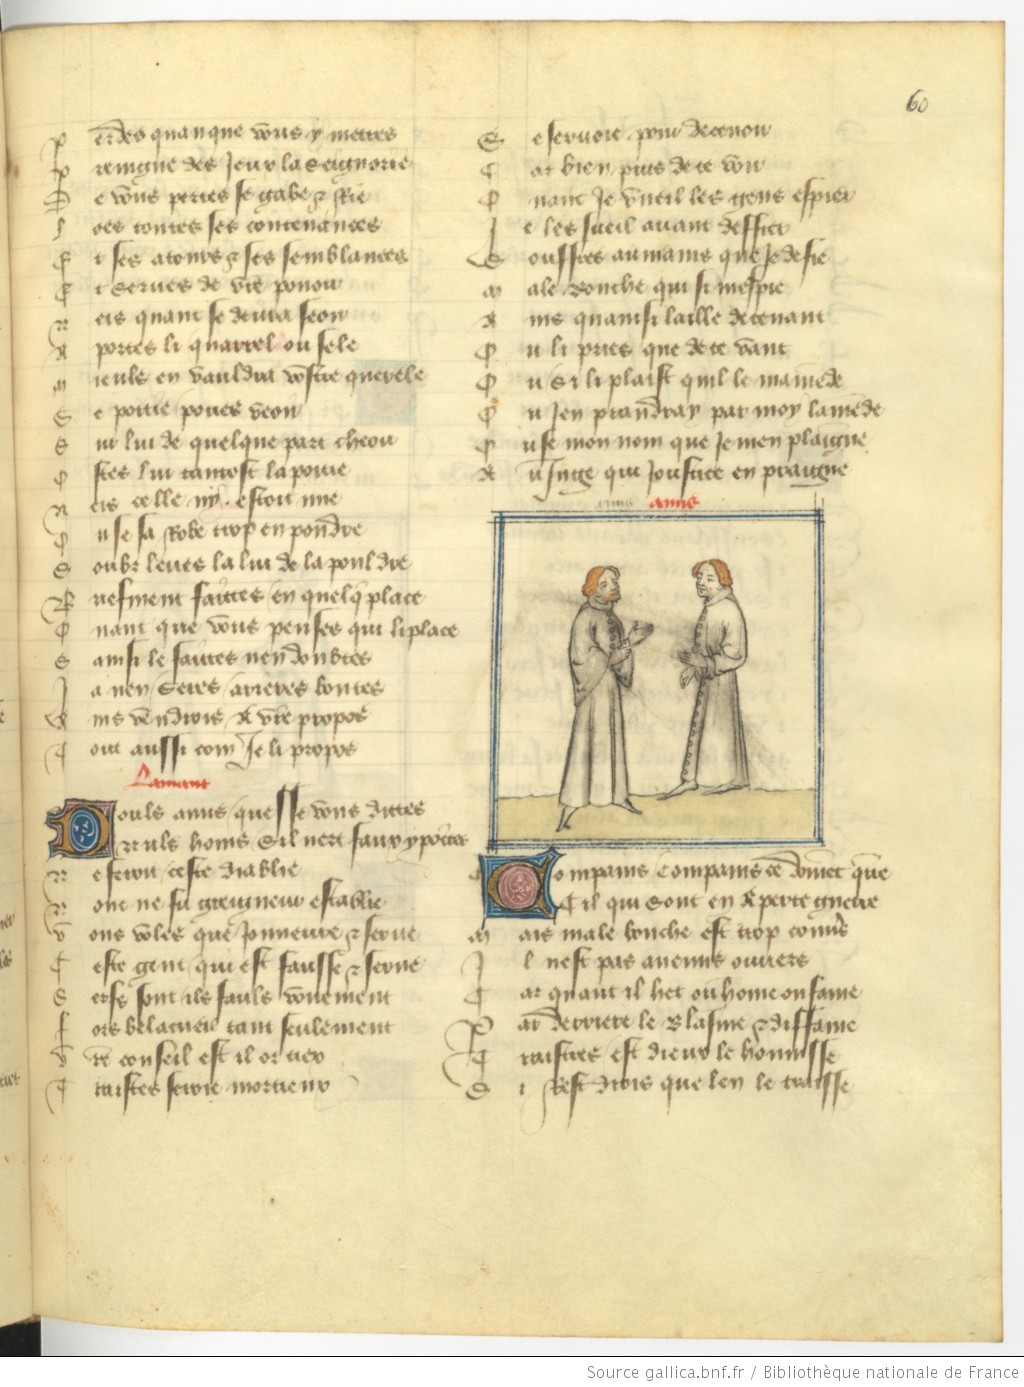 60
P erdes quanque vous y mettes
P rengne des jeux la seignorie
D e vous pertes se gabe & rie
l oes toutes ses contenances
E t ses atours & ses semblances
E t serves de vre pooir
N eis quant se devra seoir
A portes li quarrel ou sele
M ieuls en vauldra vostre querele
S e potrie poues veoir
S ur lui de quelque part cheoir
O stes lui tantost la potrie
N eis celle ny estoit mie
O u se sa robe trop en pondre
S oubzleves la lui de la pouldre
B riefment faictes en quelq place
Q uant que vous penses qui li place
S ainsi le faites nen doubtes
J a nen seres arieres boutes
A ins vendrois A vre propos
T out aussi com je li propos
Lamant
D ouls amis quesse vous dites
N uls homs sil nert faux ypocrites
N e feroit ceste diablie
N onc ne fu greigneur establie
V ous voles que jonneure & serve
C este gent qui est fausse & serve
S erfs sont ils fauls voirement
F ors belacueil tant seulement
V re conseil est il or tiex
T raistes seroie mortieux
S e servoie pour decevoir
C ar bien puis de ce voir
Q uant je vueil les gens espier
J e les sueil avant deffier
S ouffres aumains que je defie
M ale bouche qui si mespie
A ins quainsi laille decevant
O u li pries que de ce vant
O u sil li plaist quil le mamede
O u jen prandray par moy lamede
O u se mon nom que je men plaigne
A u juge qui joustice en praigne
amis
C ompains compains ce doivet querre
C il qui sont en aperte guerre
M ais male bouche est trop couvers
J l nest pas anemis ouvers
C ar quant il het ou home ou fame
P ar derriere le blasme & diffame
T raistres est dieux le honnisse
S i rest drois que len le traisse
Source gallica.bnf.fr / Bibliothèque nationale de France